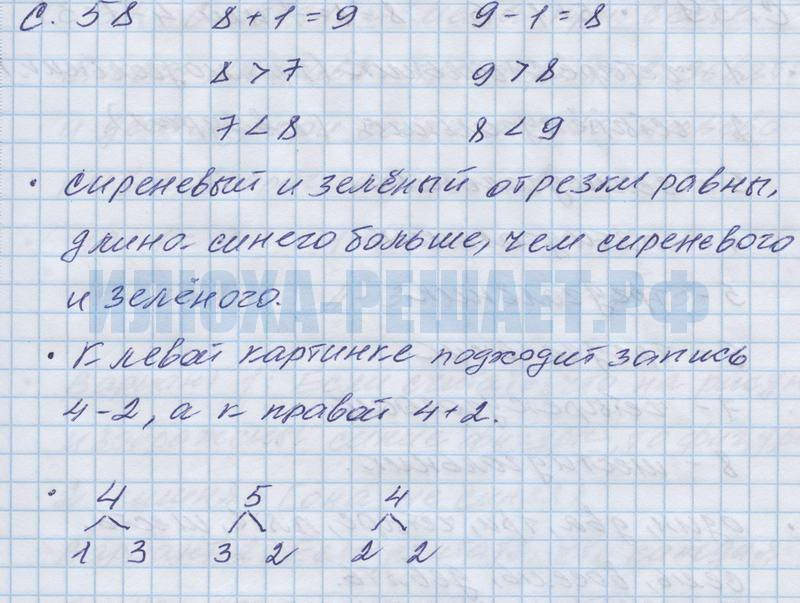 С. 58 8 + 1 = 9 9 - 1 = 8
8 > 7 9 > 8
7 < 8 8 < 9
• сиреневый и зелёный отрезки равны,
длина синего больше, чем сиреневого
и зелёного.
ИЛЮХА-РЕШАЕТ.РФ
• К левой картинке подходит запись
4-2, а к правой 4+2.
• 4 5 4
1 3 3 2 2 2